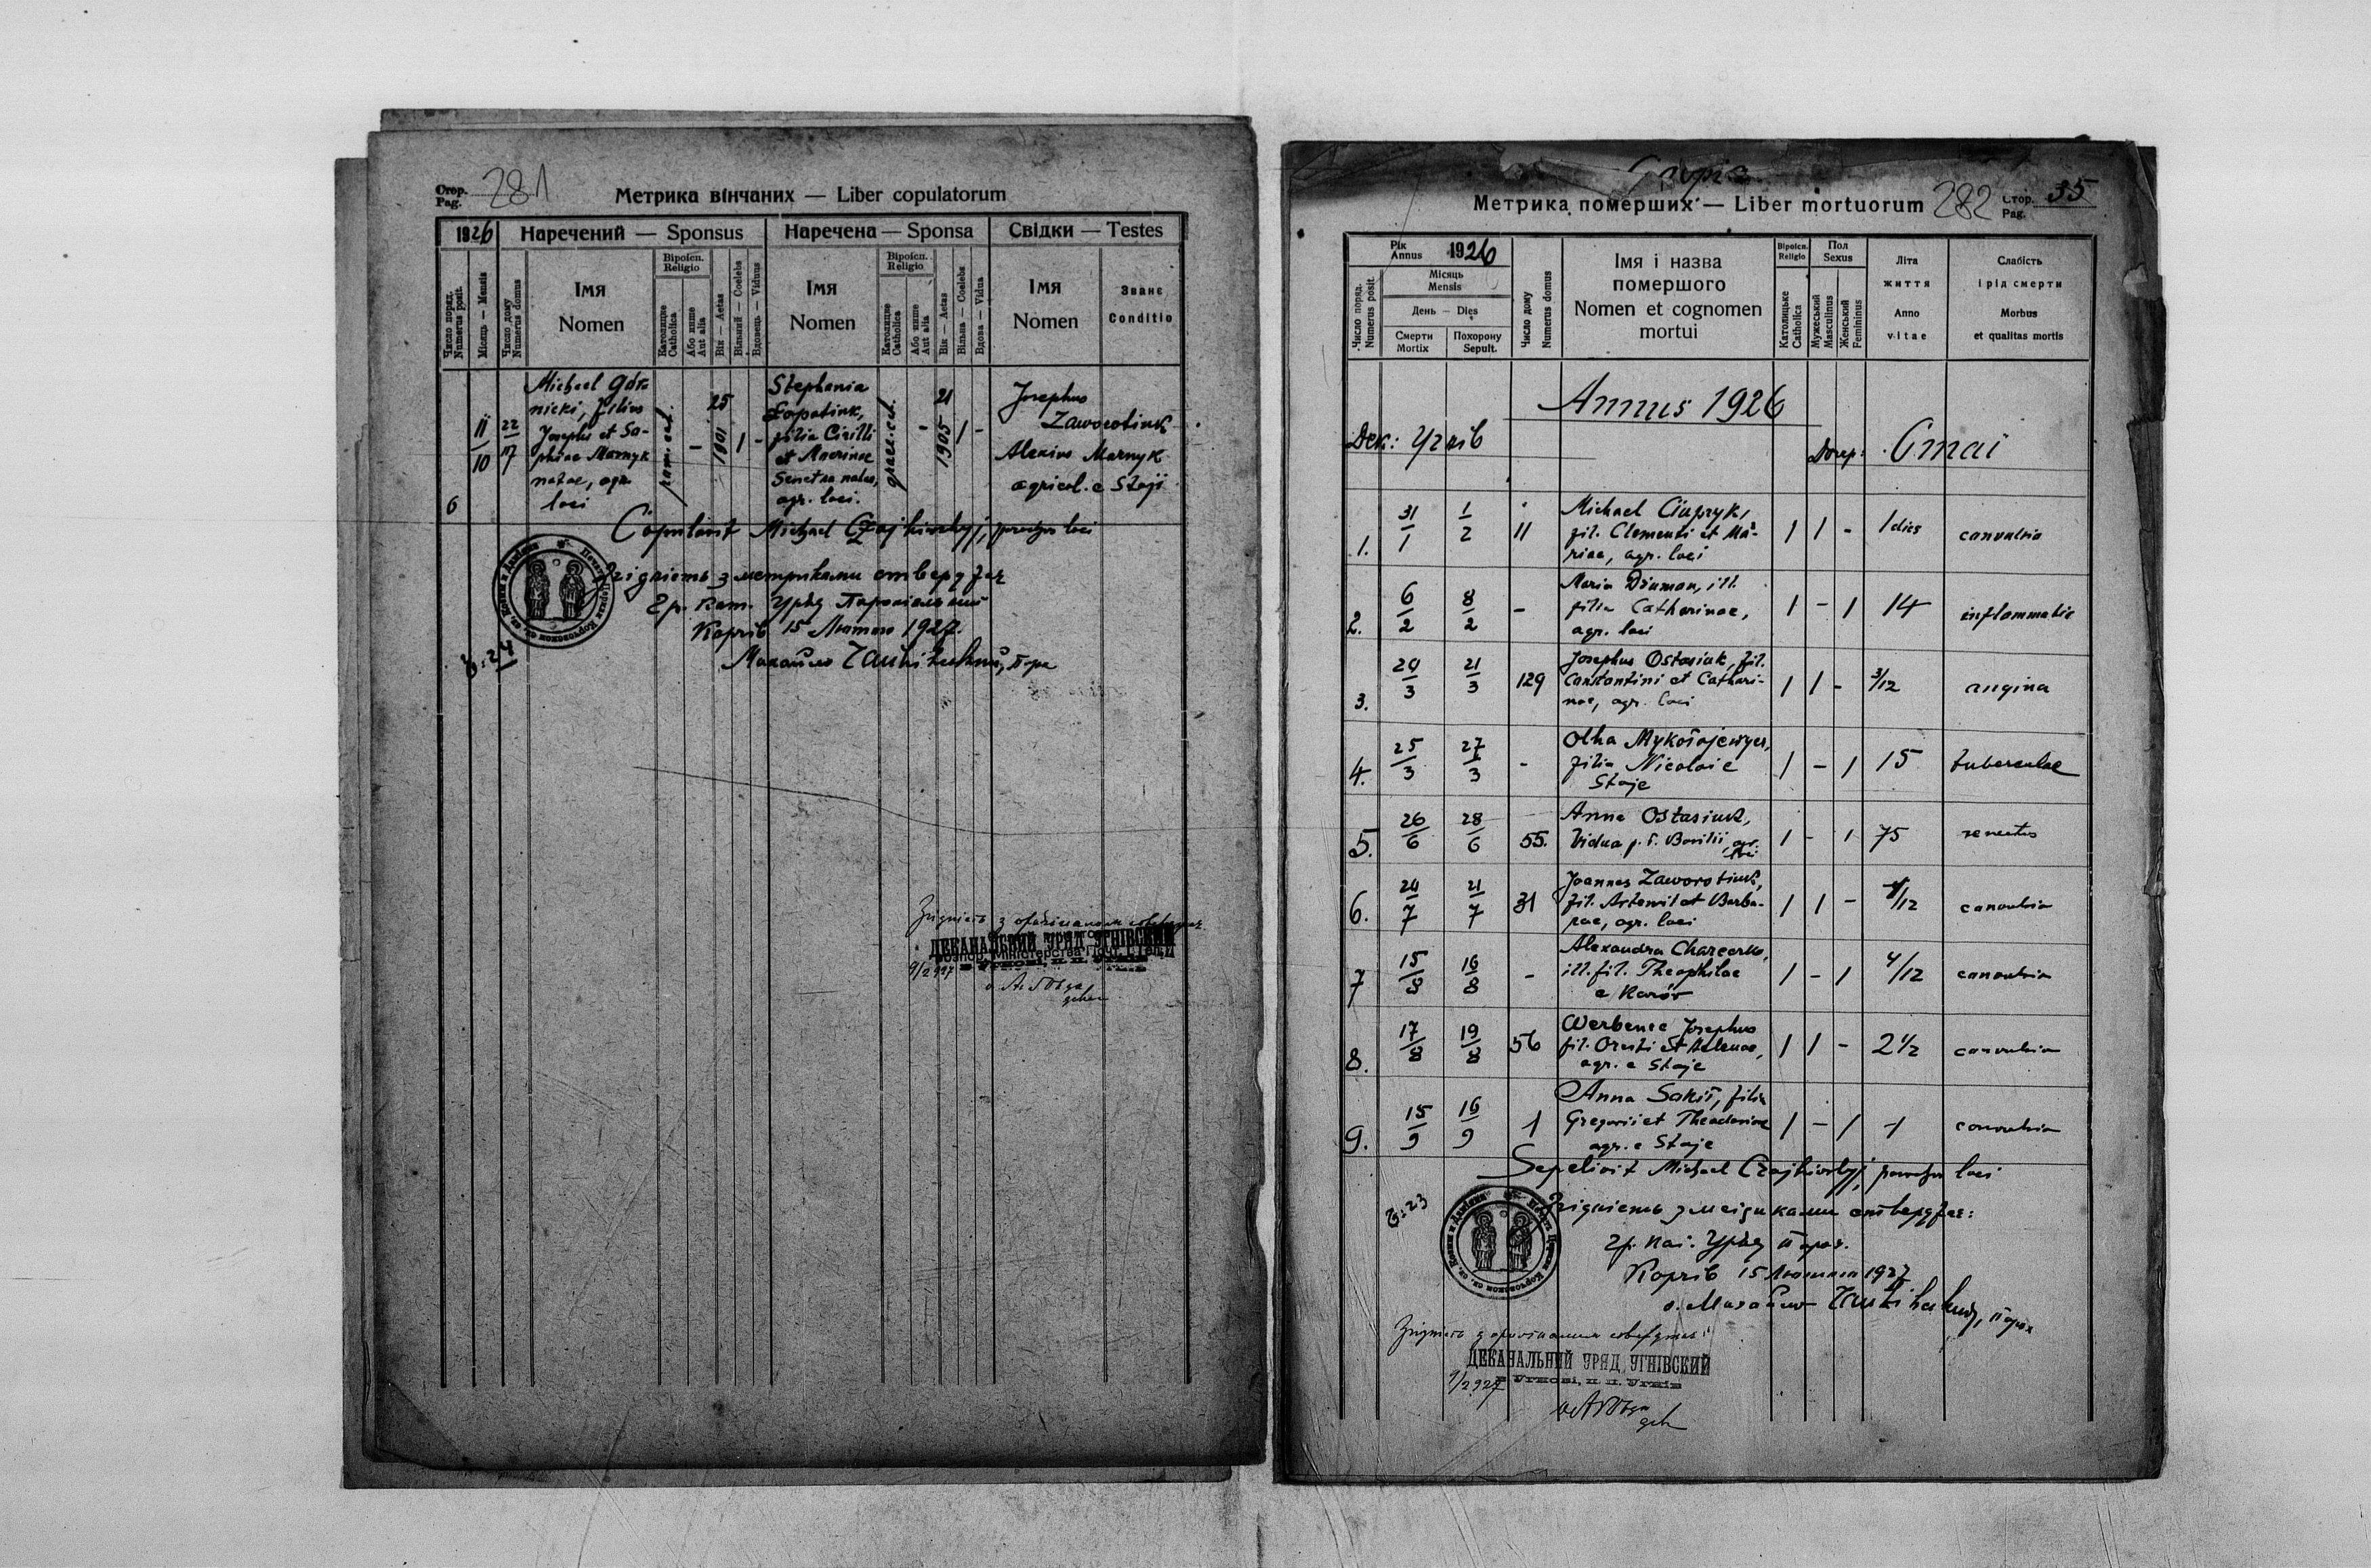 Стор. Pag. 281
Метрика вінчаних — Liber copulatorum
1926
Наречений — Sponsus
Наречена — Sponsa
Свідки — Testes
Число поряд. Numerus posit.
Місяць — Mensis
Число дому Numerus domus
Імя Nomen
Віроісп. Religio
Католицке Catholica
Або инше Aut alia
Вік — Aetas
Вільний — Coelebs
Вдовець — Viduus
Імя Nomen
Віроісп. Religio
Католицке Catholica
Або инше Aut alia
Вік — Aetas
Вільна — Coelebs
Вдова — Vidua
Імя Nomen
Званє Conditio
6
11/10
22
17
Michael Gór-
nicki, filius
Josephi et So-
phiae Marnyk
natae, agr.
loci
rom. cat.
-
25
1901
1
-
Stephania
Łopatiuk,
filia Cirilli
et Marinae
natae,
agr. loci.
graec. cat.
-
21
1905
1
-
Josephus
Zaworotiuk
Alexius Marnyk
agricol. e Staji
Copulavit Michael Czajkiwskyj, parochus loci
Згідність з метриками стверджає
Гр. Кат. Уряд Парохіяльний
Корчів 15 Лютого 1927.
Михайло Чайківский, Парох
Згідність з оригіналом стверджає
ДЕКАНАЛЬНИЙ УРЯД УГНІВСКИЙ
9/2 927
Стор. Pag. 35
282
Метрика померших — Liber mortuorum
Рік Annus 1926
Число поряд. Numerus posit.
Місяць Mensis
День — Dies
Смерти Mortix
Похорону Sepult.
Число дому Numerus domus
Імя і назва
помершого
Nomen et cognomen
mortui
Віроісп. Religio
Католицьке Catholica
Пол Sexus
Мужеський Masculinus
Женський Femininus
Літа
життя
Anno
vitae
Слабість
і рід смерти
Morbus
et qualitas mortis
Annus 1926
Дек: Угнів
1. 31/1 1/2 11 Michael Ciupryk,
fil. Clementi et Ma-
riae, agr. loci
1 1 - 1 dies convulsio
2. 6/2 8/2 - Maria Dziuman, ill.
filia Catharinae,
agr. loci
1 - 1 14 inflammatio
3. 20/3 21/3 129 Josephus Ostasiuk, fil.
Constantini et Cathari-
nae, agr. loci
1 1 - 3/12 angina
4. 25/3 27/3 - Olha Mykołajewycz,
filia Nicolai e
Staje
1 - 1 15 tuberculae
5. 26/6 28/6 55. Anna Ostasiuk,
vidua p. d. Basilii, agr.
loci
1 - 1 75 senectus
6. 20/7 21/7 31 Joannes Zaworotiuk,
fil. Artemii et Barba-
rae, agr. loci
1 1 - /12 convulsio
7 15/8 16/8 - Alexandra Charcorko,
ill. fil. Theophilae
e Korów
1 - 1 4/12 convulsio
8. 17/8 19/8 56 Werbenec Josephus
fil. Oresti et Helenae,
agr. e Staje
1 1 - 2 1/2 convulsio
9. 15/9 16/9 1 Anna Sakit, filia
Gregorii et Theodosiae
agr. e Staje
1 - 1 1 convulsio
Sepelivit Michael Czajkiwskyj, parochus loci
Згідність з метриками стверджає:
Гр. Кат. Уряд Парох.
Корчів 15 Лютого 1927
о. Михайло Чайківский, Парох
Згідність з оригіналом стверджає
ДЕКАНАЛЬНИЙ УРЯД УГНІВСКИЙ
в Угнові, п. п. Угнів
9/2 927